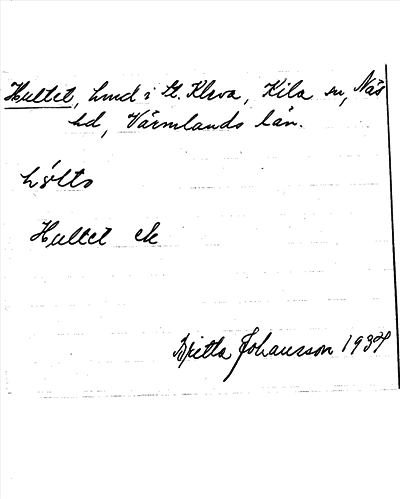 Hultet, hmd i St. Kleva, Kila sn, Näs
hd, Värmlands län.
hùlts
Hultet ek
Britta Johansson 1937